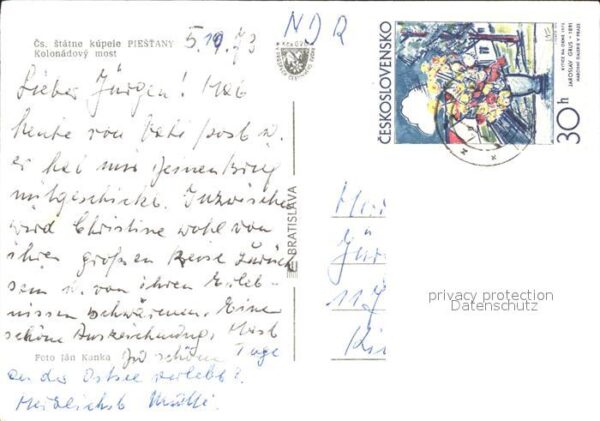 Čs. štátne kúpele PIEŠŤANY
Kolonádový most
5.10.73
NDR
Lieber Jürgen! Hab
heute von Vati post u.
er hat mir deinen Brief
mitgeschickt. Inzwischen
wird Christine wohl von
ihrer großen Reise zurück
sein u. von ihren Erleb-
nissen schwärmen. Eine
schöne Auszeichnung. Hast
Foto Ján Kanka
Du schöne Tage
an der Ostsee verlebt?
Herzlichst Mutti
BRATISLAVA
ČESKOSLOVENSKO
30h
JAROSLAV GRUS - 1891
NÁRODNÍ GALERIE V PRAZE
Jür
privacy protection
Datenschutz